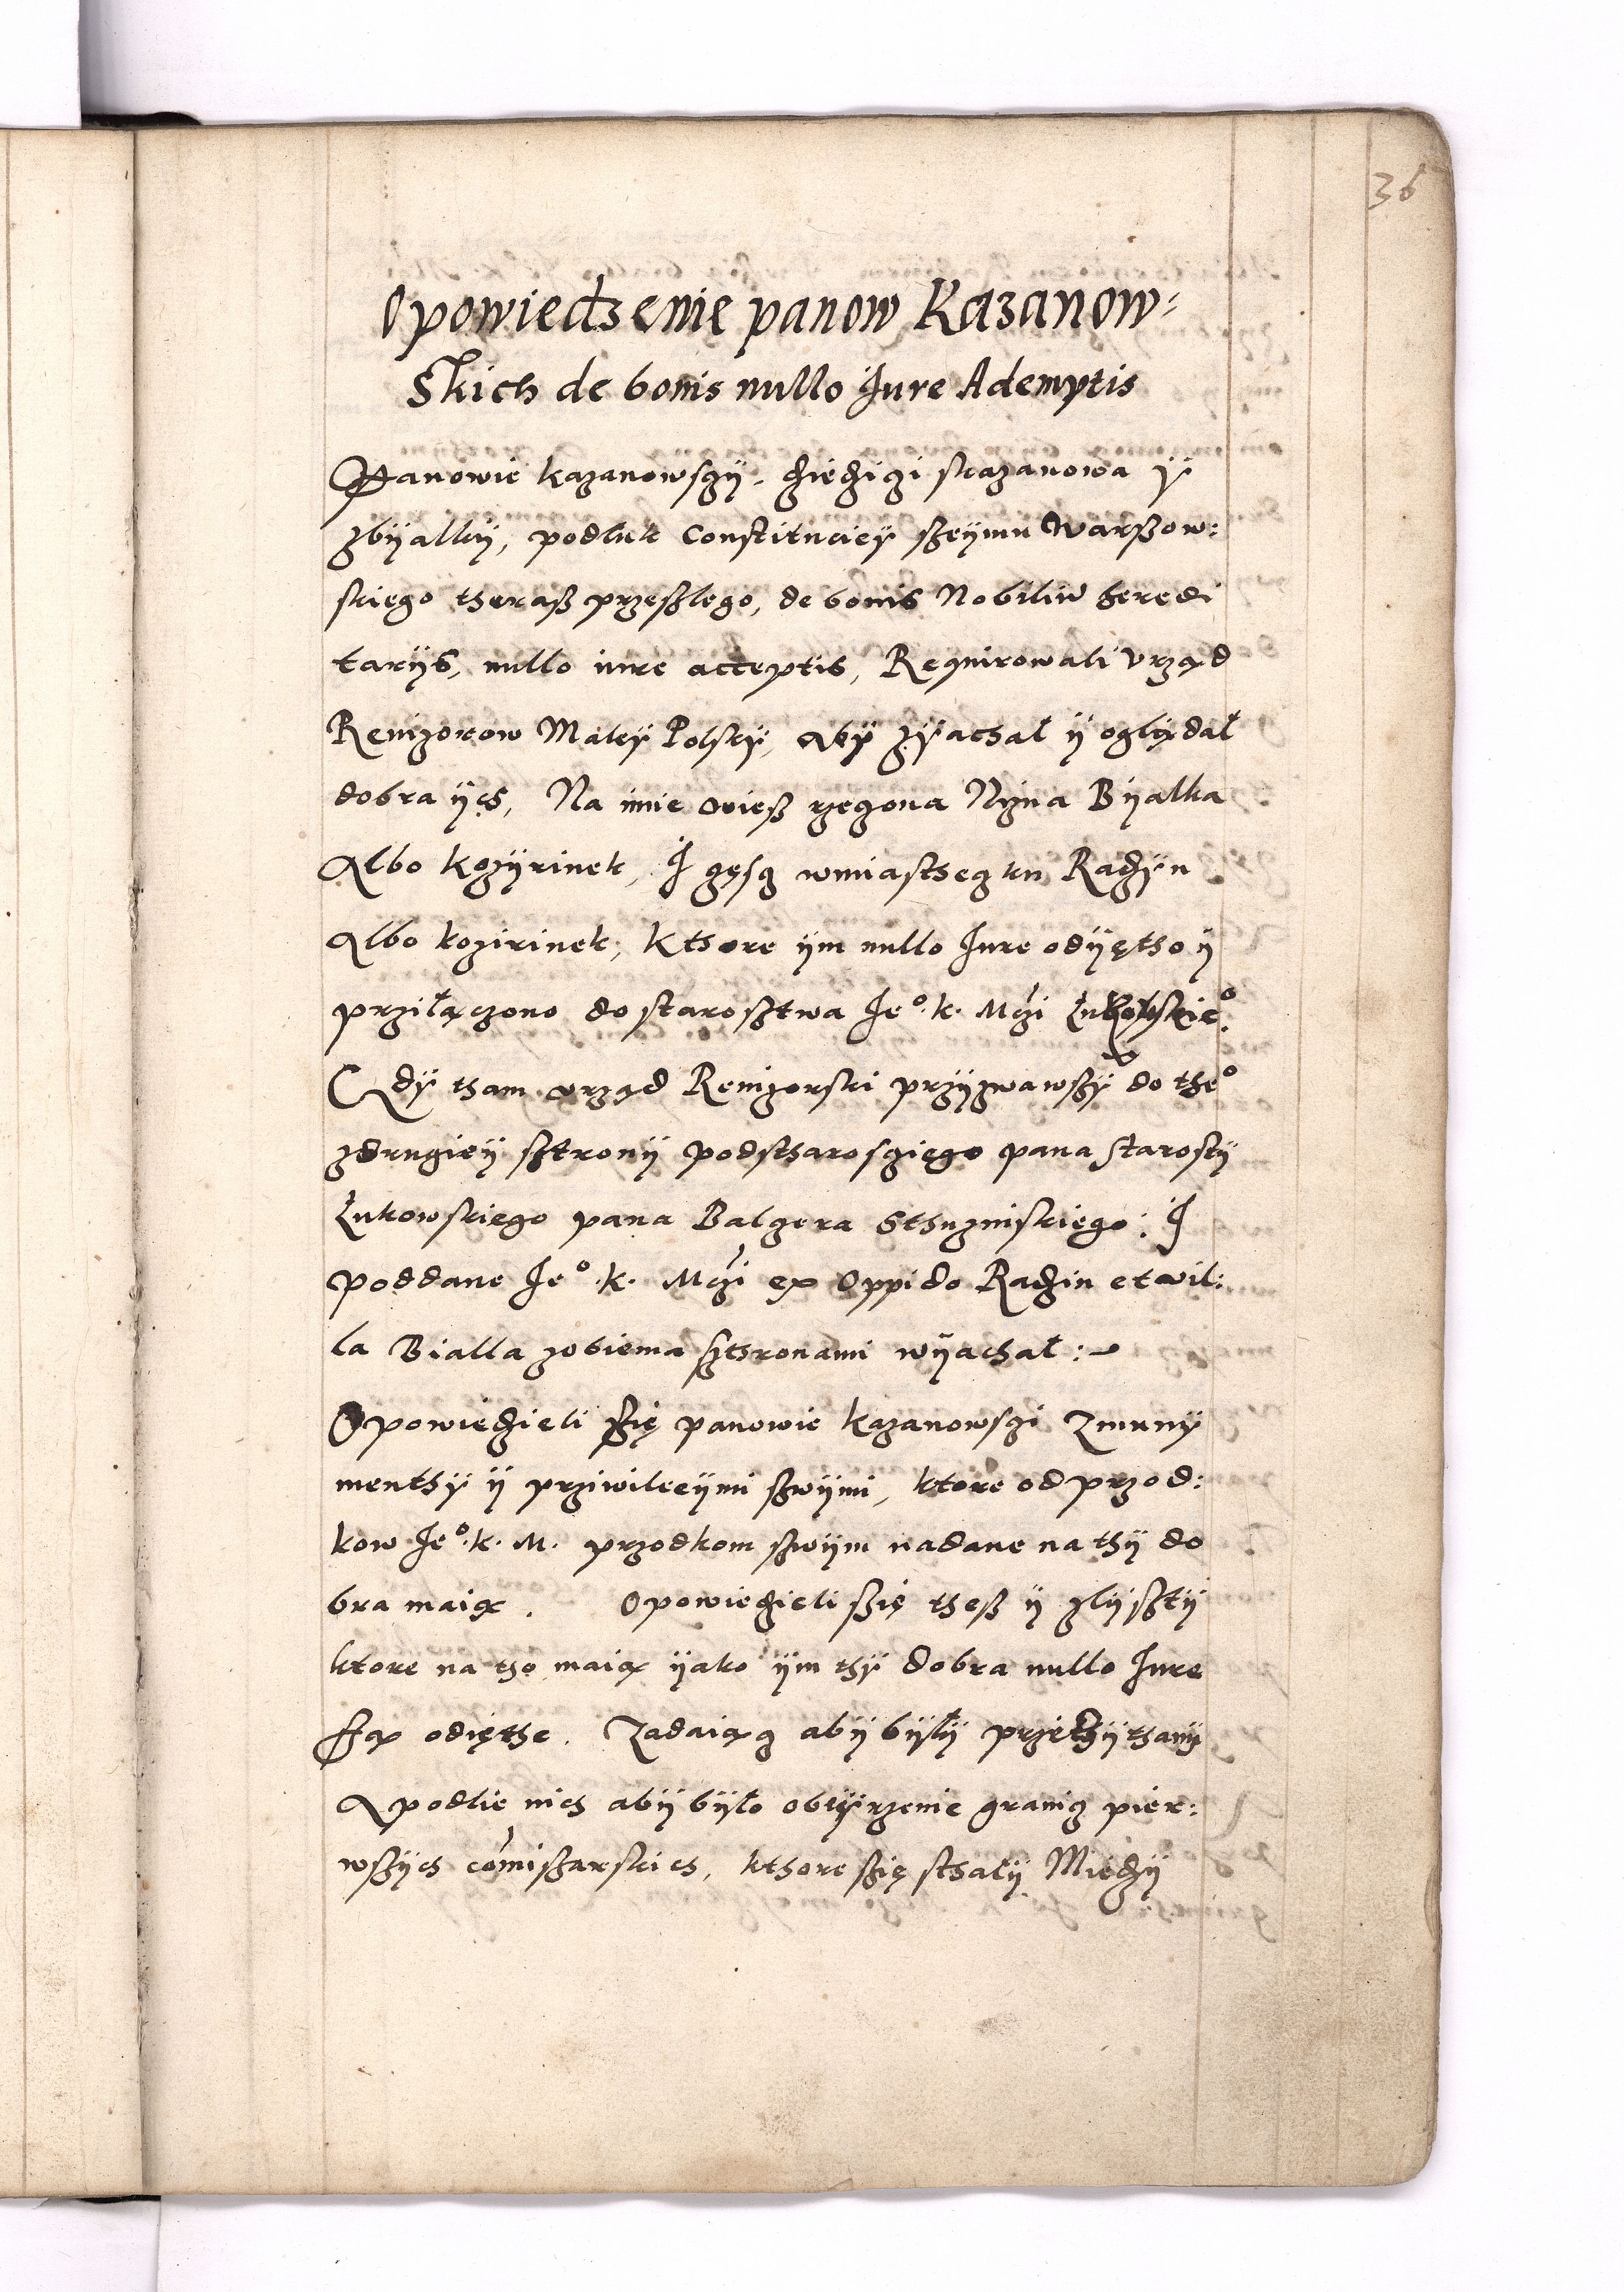 36
Opowiedzenie panow Kazanow-
Skich de bonis nullo Jure Ademptis
Panowie kazanowszÿ. dziedzizi skazanowa ÿ
zbÿalkÿ, podluk Constituciey szeÿmu Warszow:
skiego theraß przeßlego, de bonis Nobiliu̅ heredi
tarÿs, nullo iure acceptis, Requirowali vrząd
Revizorow Maley Polskÿ, abÿ zÿachał ÿ oglądał
dobra ÿch, Na imie wieß rzegona Bÿalka
Albo kozÿrinek, J częscz wmiasthegku Radzÿn
Albo kozirinek, kthore ÿm nullo Jure odÿętho ÿ
przÿłączono do starosztwa Je°. k. Mczi Łukowskie°.
Gdÿ tham vrząd Revizorski przÿzwawszÿ do the°
zdrugieÿ sztronÿ podstharosziego pana Starostÿ
Łukowskiego pana Balgera Sthuzniskiego: J
poddane Je°. k. Mczi ex Oppido Radzin et vil:
la Bialla zobiema szthronami wÿachał :
Opowiedzieli szię panowie kazanowszi Zmunÿ
menthÿ ÿ prziwileÿmi szwÿmi, ktore od przod:
kow Je°. k. M. przodkom szwÿm nadane na thÿ do
bra maią. Opowiedzieli szię theß ÿ zlÿsztÿ
ktore na tho maią ÿako ÿm thÿ dobra nullo Jure
szą odięthe. Zadaiącz abÿ bÿłÿ przeczÿthanÿ
A podlie nich abÿ bÿło obeÿrzenie granicz pier:
wszÿch co̅miszarskich, kthore szię sthałÿ Miedzÿ